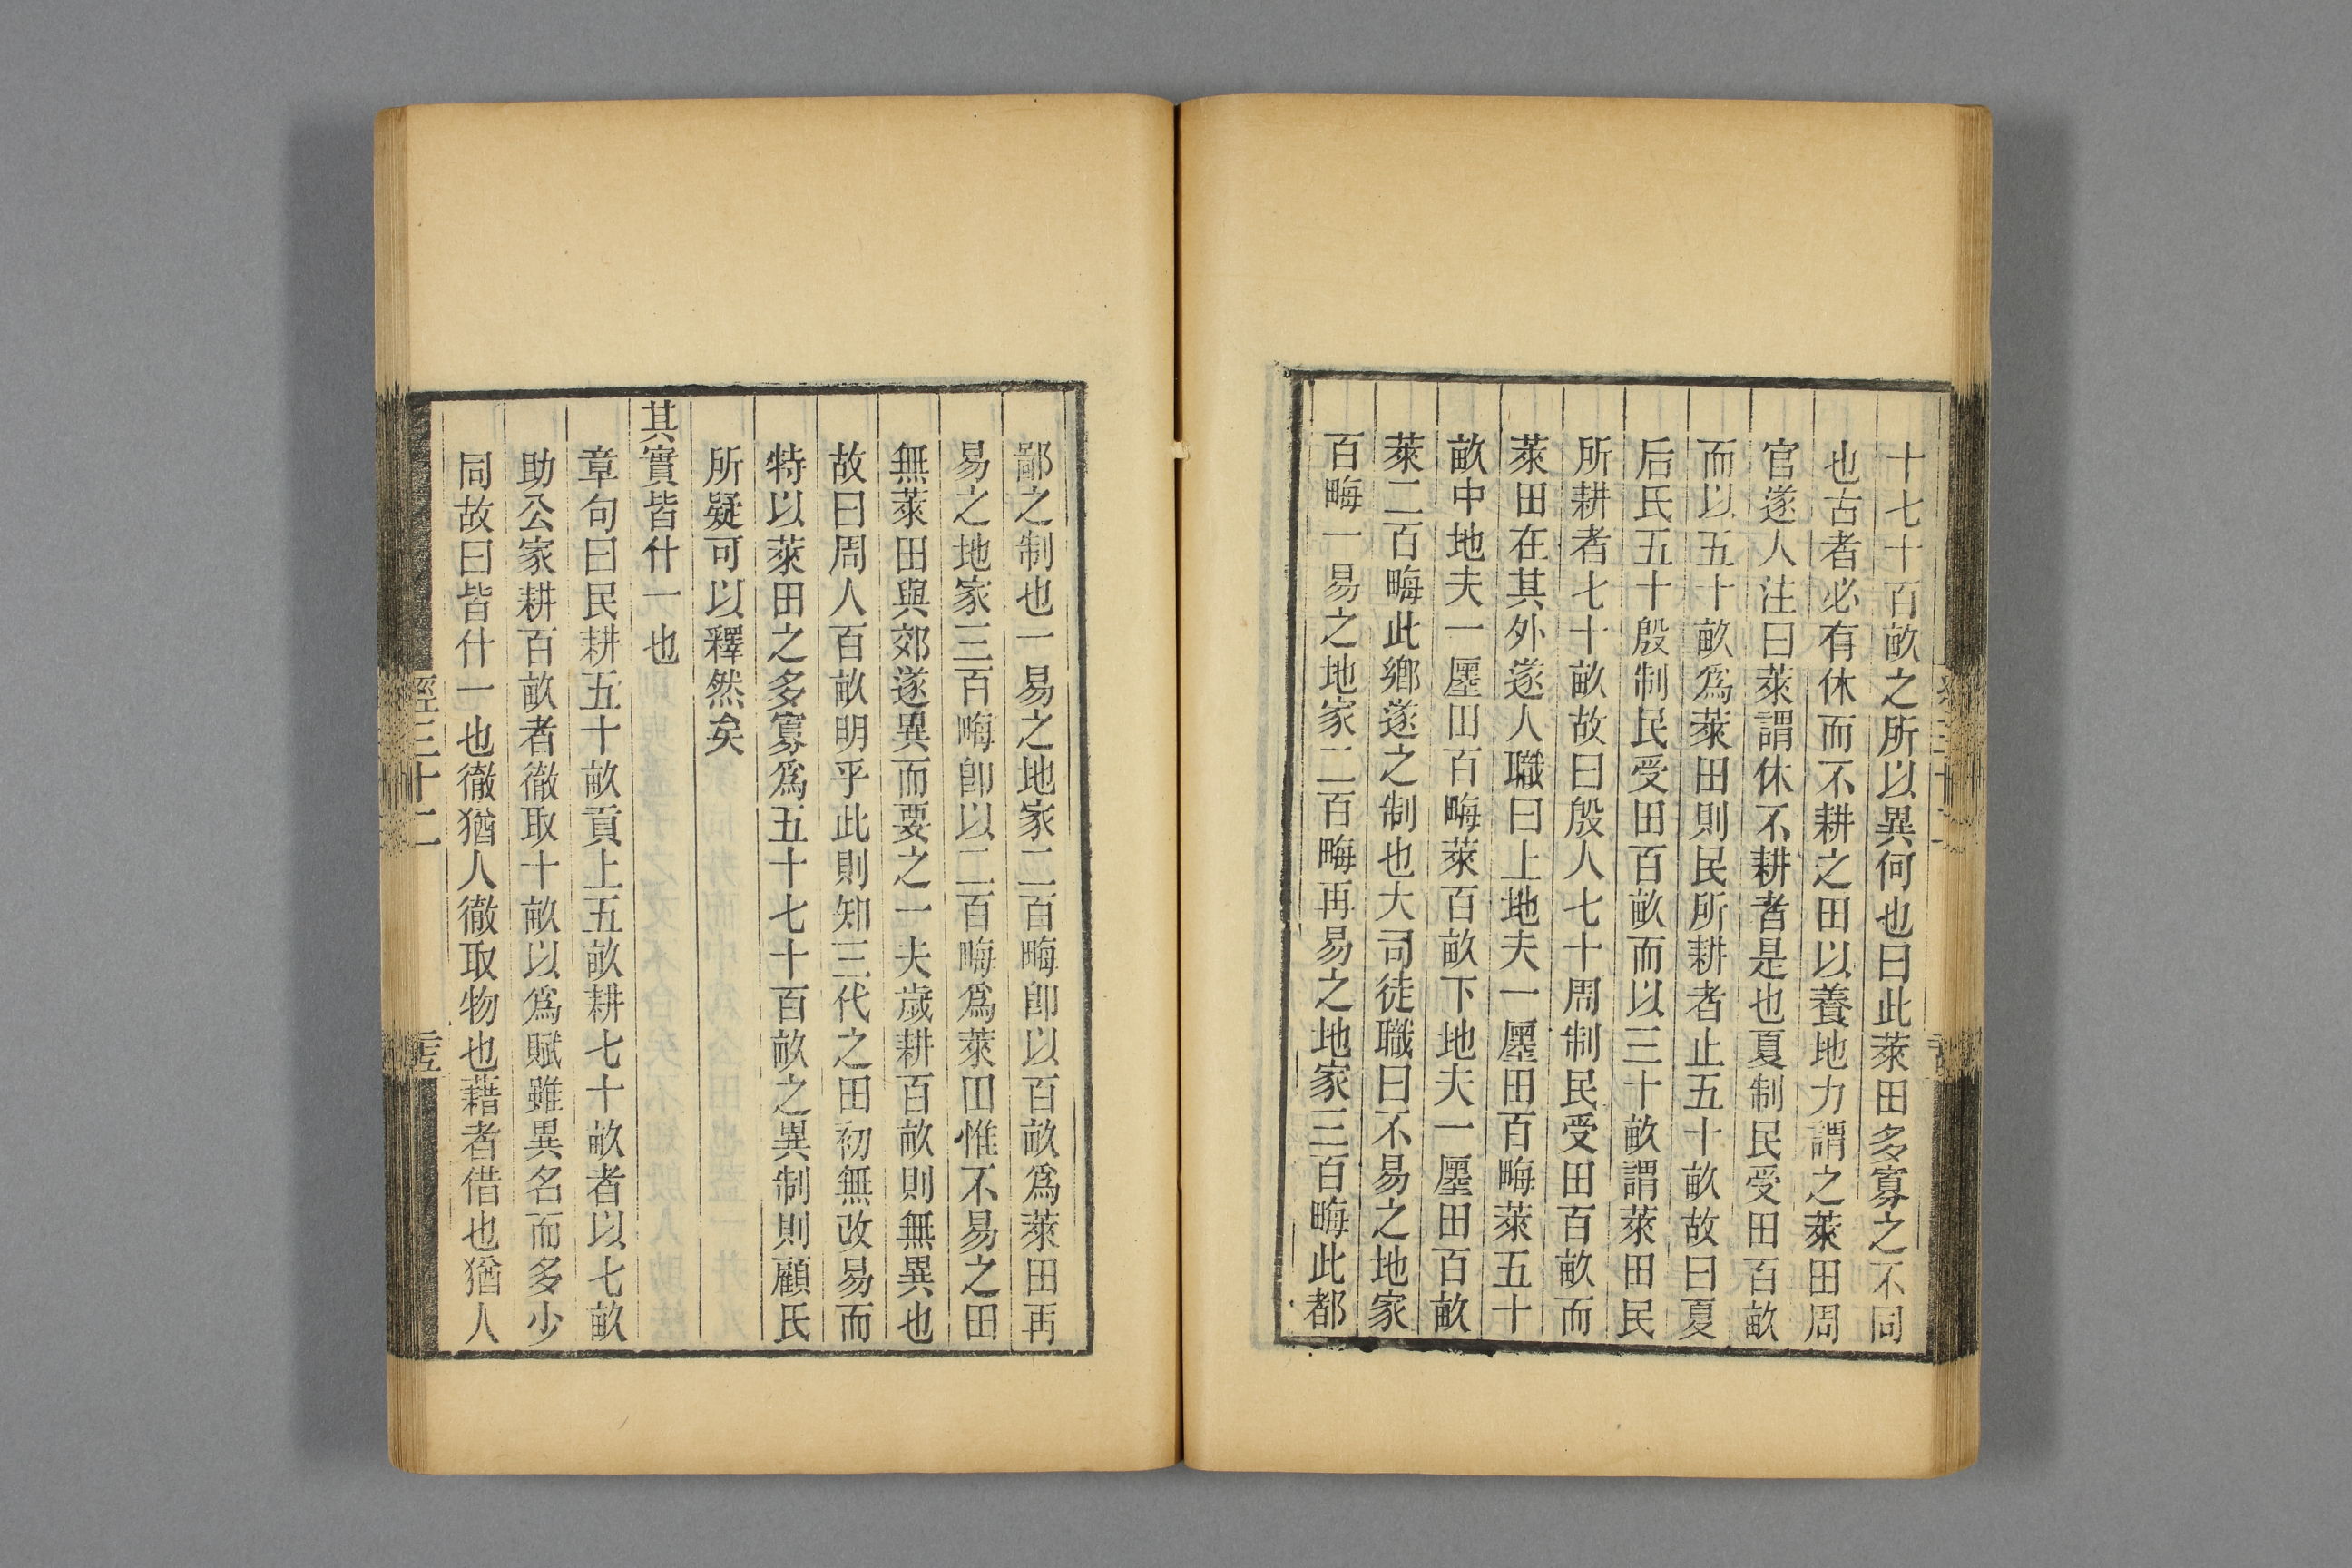 十七十百畝之所以異何也曰此萊田多寡之不同
也古者必有休而不耕之田以養地力謂之萊田周
官遂人注曰萊謂休不耕者是也夏制民受田百畝
而以五十畝爲萊田則民所耕者止五十畝故曰夏
后氏五十殷制民受田百畝而以三十畝謂萊田民
所耕者七十畝故曰殷人七十周制民受田百畝而
萊田在其外遂人職曰上地夫一廛田百畮萊五十
畝中地夫一廛田百畮萊百畝下地夫一廛田百畝
萊二百畮此鄉遂之制也大司徒職曰不易之地家
百畮一易之地家二百畮再易之地家三百畮此都
鄙之制也一易之地家二百畮卽以百畝爲萊田再
易之地家三百畮卽以二百畮爲萊田惟不易之田
無萊田與郊遂異而要之一夫歲耕百畝則無異也
故曰周人百畝明乎此則知三代之田初無改易而
特以萊田之多寡爲五十七十百畝之異制則顧氏
所疑可以釋然矣
其實皆什一也
章句曰民耕五十畝貢上五畝耕七十畝者以七畝
助公家耕百畝者徹取十畝以爲賦雖異名而多少
同故曰皆什一也徹猶人徹取物也藉者借也猶人
經三十二